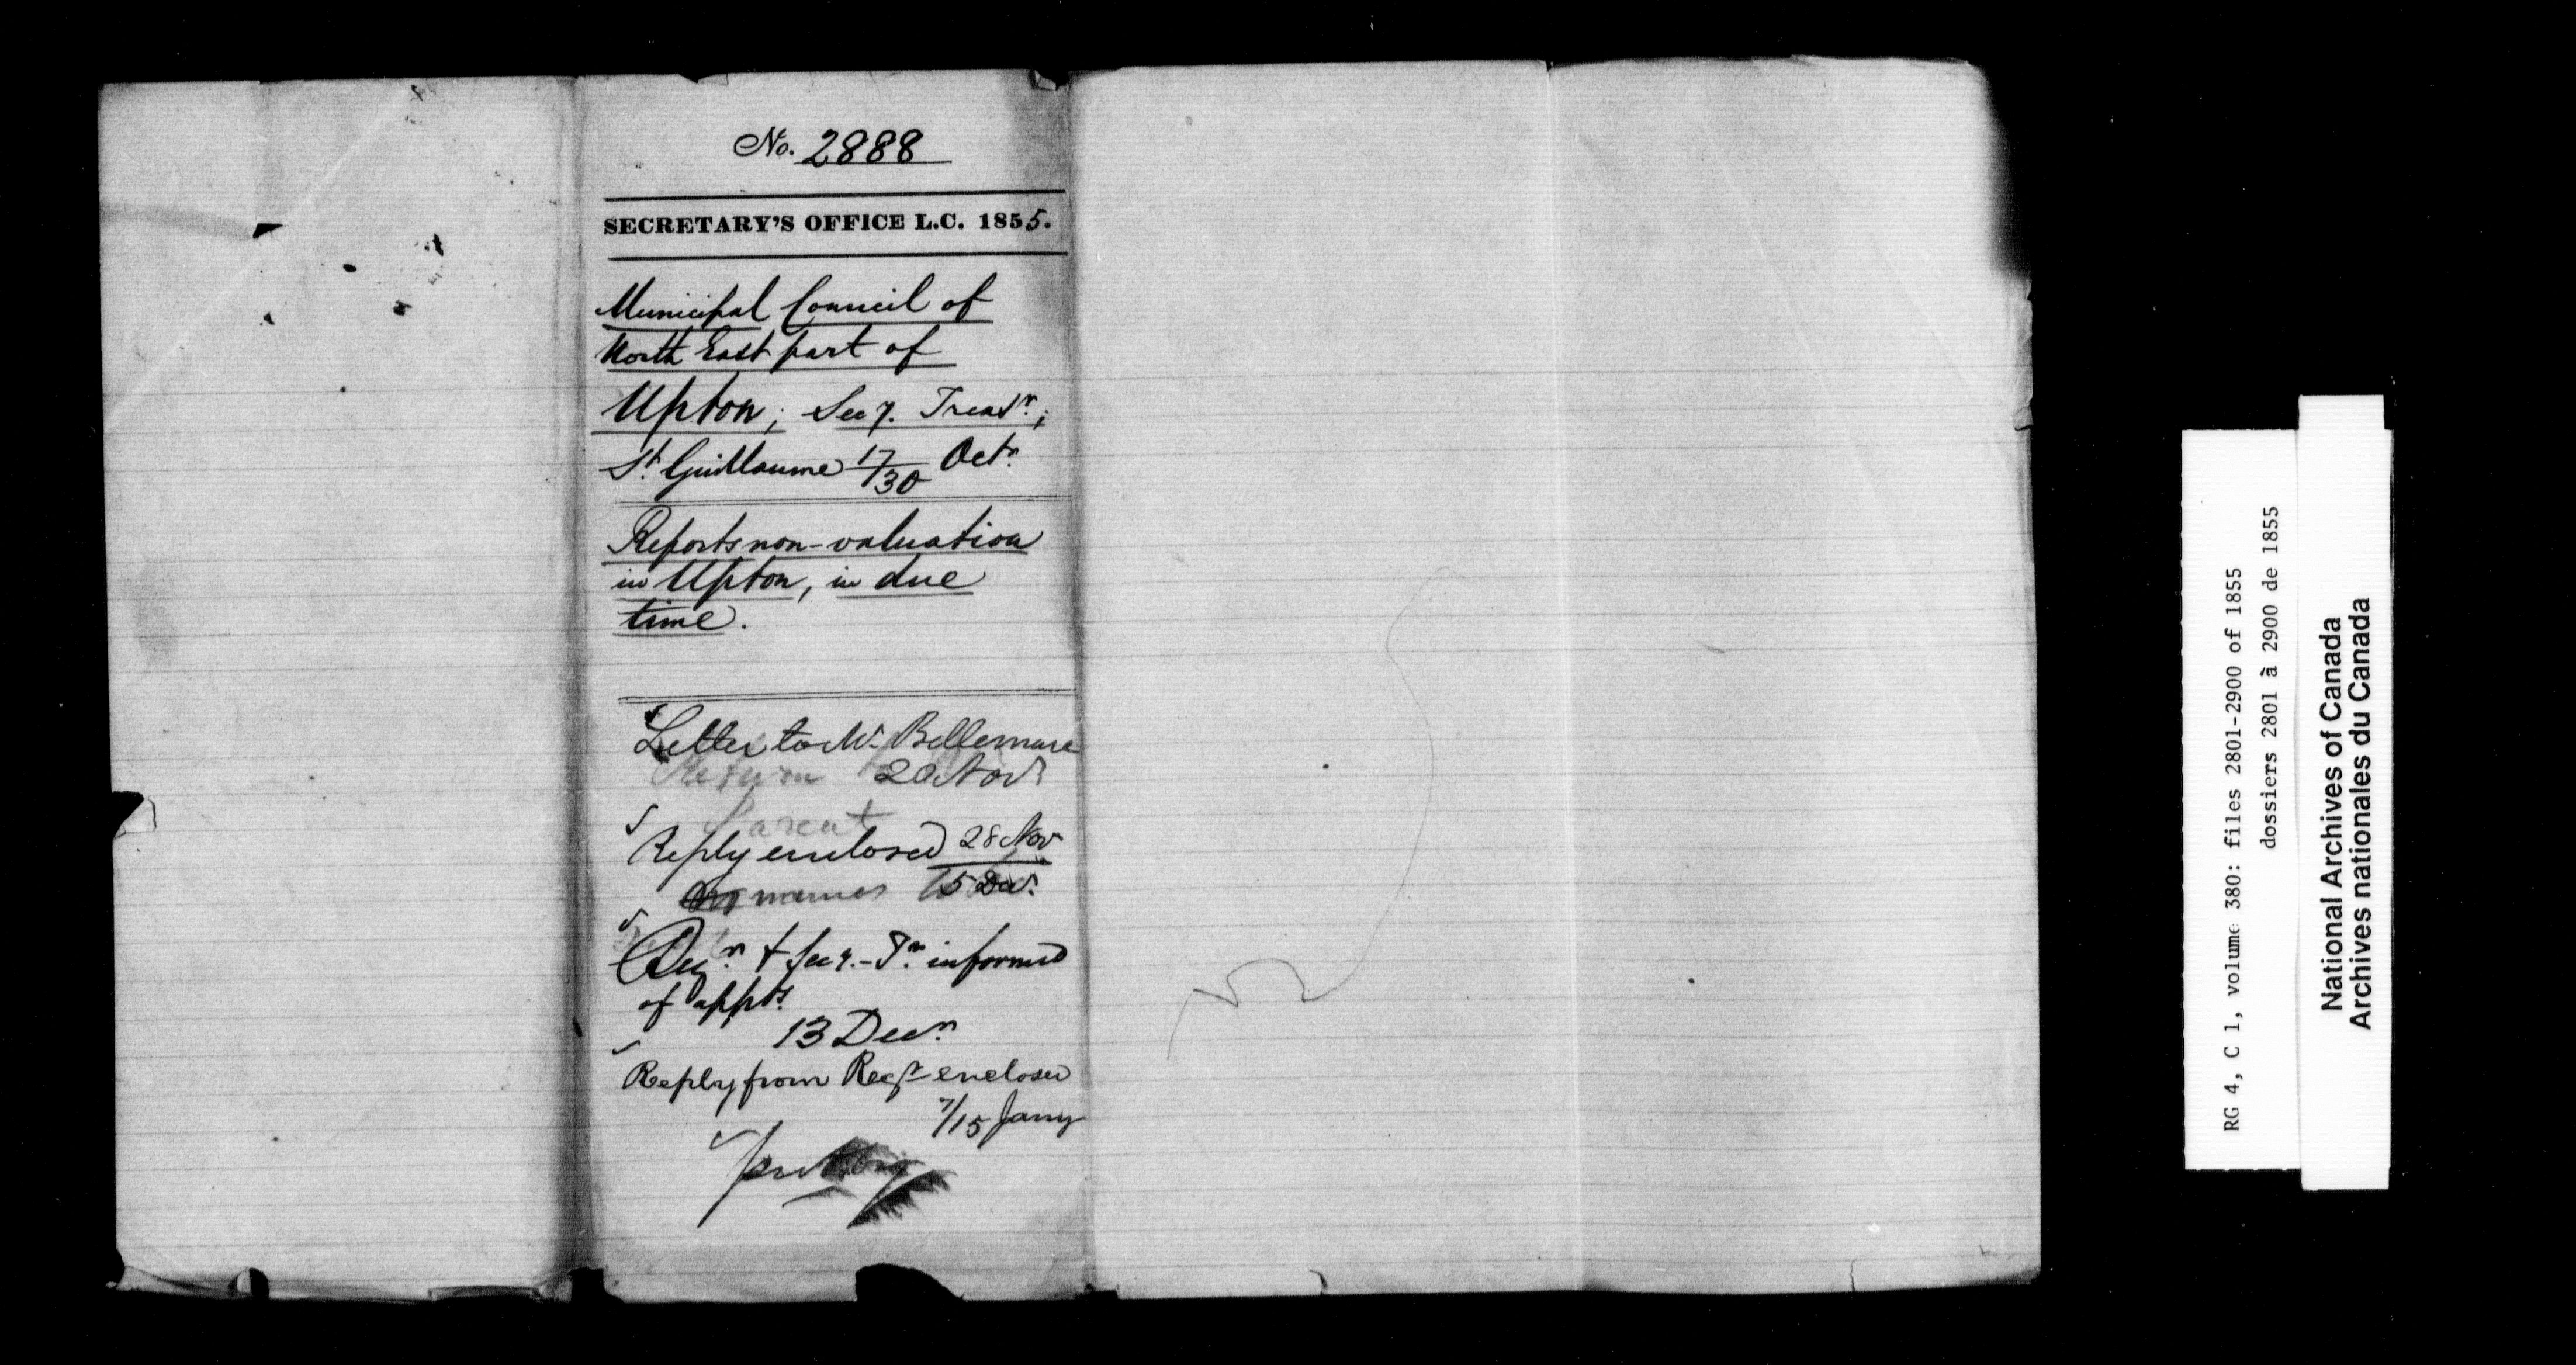 No. 2888
SECRETARY'S OFFICE L.C. 1855.
Municipal Council of
North East part of
Upton; Secy. Treasr.;
St. Guillaume 17/30 Octr.
Reports non-valuation
in Upton, in due
time.
Letter to Mr. Bellemare
Return 20 Novr
Parent
Reply enclosed 28 Nov
names 15 Decr.
& Secy.-Tr. informed
of appts.
13 Decr.
Reply from Regr enclosed
7/15 Jany
RG 4, C 1, volume 380: files 2801-2900 of 1855
dossiers 2801 à 2900 de 1855
National Archives of Canada
Archives nationales du Canada